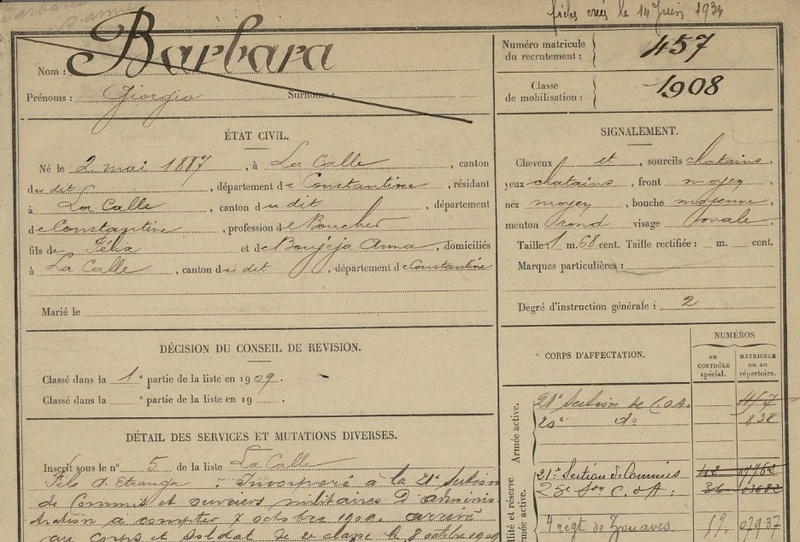 fiches crées le 14 Juin 1934
Nom : Barbara
Prénoms : Giorgio Surnoms :
Numéro matricule
du recrutement : 457
Classe
de mobilisation : 1908
ÉTAT CIVIL.
Né le 2 mai 1887, à La Calle, canton
du dit, département de Constantine, résidant
à La Calle, canton du dit, département
de Constantine, profession de Boucher
fils de Félix et de Boujeja Anna, domiciliés
à La Calle, canton du dit, département de Constantine
Marié le
SIGNALEMENT.
Cheveux et, sourcils chatains,
yeux chatains, front moyen
nez moyen, bouche moyenne,
menton rond visage ovale
Taille : 1 m. 68 cent. Taille rectifiée : m. cent.
Marques particulières :
Degré d'instruction générale : 2
DÉCISION DU CONSEIL DE REVISION.
Classé dans la 1e partie de la liste en 1909.
Classé dans la e partie de la liste en 19
DÉTAIL DES SERVICES ET MUTATIONS DIVERSES.
Inscrit sous le n° 5 de la liste La Calle
Fils d'Etranger Incorporé à la 21e Section
de Commis et ouvriers militaires D'adminis
tration a compter 7 octobre 1909. arrivé
au corps et soldat de 2e classe le 8 octobre 1909
CORPS D'AFFECTATION.
NUMÉROS
au
CONTRÔLE
spécial.
MATRICULE
ou au
répertoire.
Armée active.
21e Section de C.O.A. 457
20e do 828
et réserve
armée active.
21e Section de Commis
C.O.A.
4e regt de Zouaves 07937